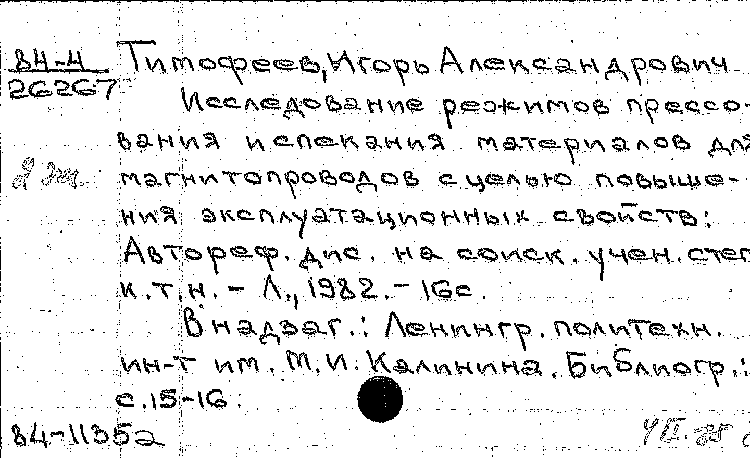 84-4
26267
Тимофеев, Игорь Александрович
Исследование режимов прессо-
вания и спекания материалов для
2 эк.
магнитопроводов с целью повыше-
ния эксплуатационных свойств:
Автореф. дис. на соиск. учен. степ
к.т.н. - Л., 1982. - 16с.
В надзаг.: Ленингр. политехн.
ин-т им. М.И. Калинина. Библиогр.:
с.15-16.
84-11352